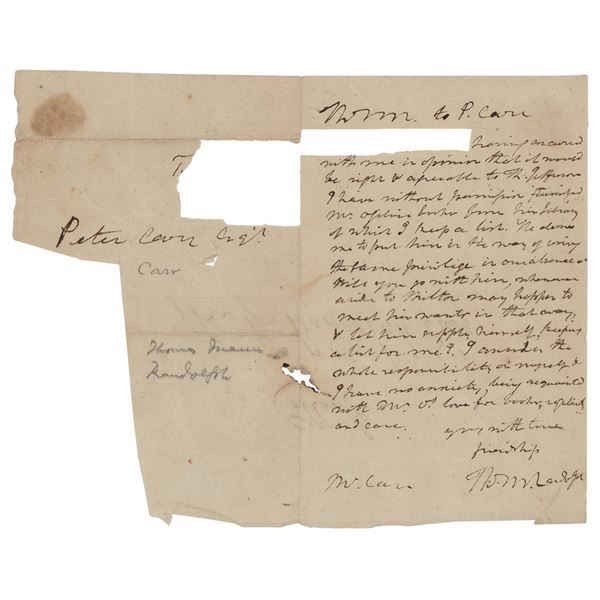 T
Peter Carr Esqr.
Carr
Thomas Mann
Randolph
Th. M. R. to P. Carr
having accord
with me in opinion that it would
be right & agreeable to Mr. Jefferson
I have without permission furnished
Mr books from his Library
of which I keep a list. He desires
me to put him in the way of using
the same privilege in our absence
Will you go with him, whenever
a ride to Milton may happen to
meet his wants in that way,
& let him supply himself, keeping
a list for me? I consider the
whole responsibility on myself &
I have no anxiety, being acquainted
with Mr. O's love for books,
and care.
yours with true
friendship
Mr. Carr
Th. M. Randolph